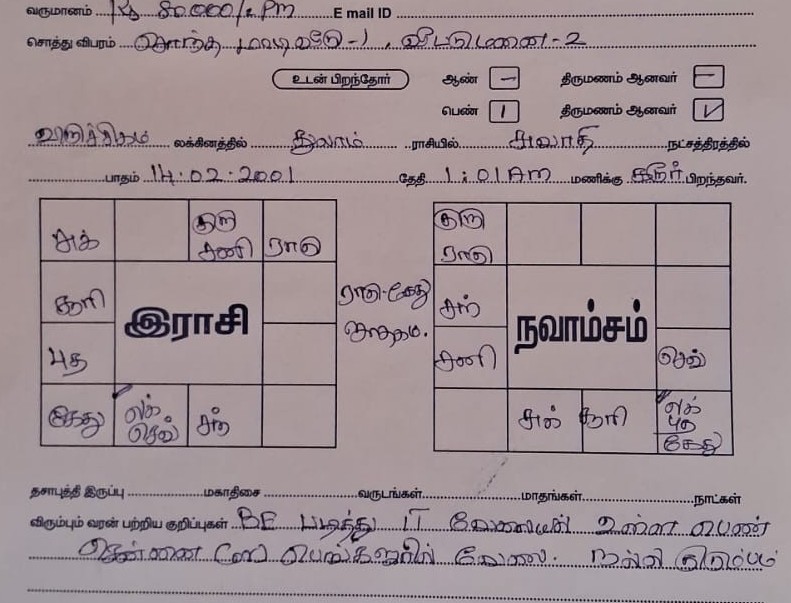 வருமானம் 1க்கு 80,000/- PM E mail ID
சொத்து விபரம் சொந்த மாடிவீடு-1, வீட்டுமனை-2
உடன் பிறந்தோர் ஆண் – திருமணம் ஆனவர் –
பெண் 1 திருமணம் ஆனவர் ✓
விருச்சிகம் லக்கினத்தில் துலாம் ராசியில் சுவாதி நட்சத்திரத்தில்
பாதம் 14.02.2001 தேதி 1:01 AM மணிக்கு கரூர் பிறந்தவர்.
சுக் குரு சனி ராகு
சூரி
புத
கேது லக் செவ் சந்
இராசி
ராகு-கேது
ஜாதகம்.
குரு ராகு
சந்
சனி செவ்
சுக் சூரி லக் புத கேது
நவாம்சம்
தசாபுத்தி இருப்பு மகாதிசை வருடங்கள் மாதங்கள் நாட்கள்
விரும்பும் வரன் பற்றிய குறிப்புகள் BE படித்து IT வேலையில் உள்ள பெண்
சென்னை (or) பெங்களூரில் வேலை. நல்ல குடும்பம்